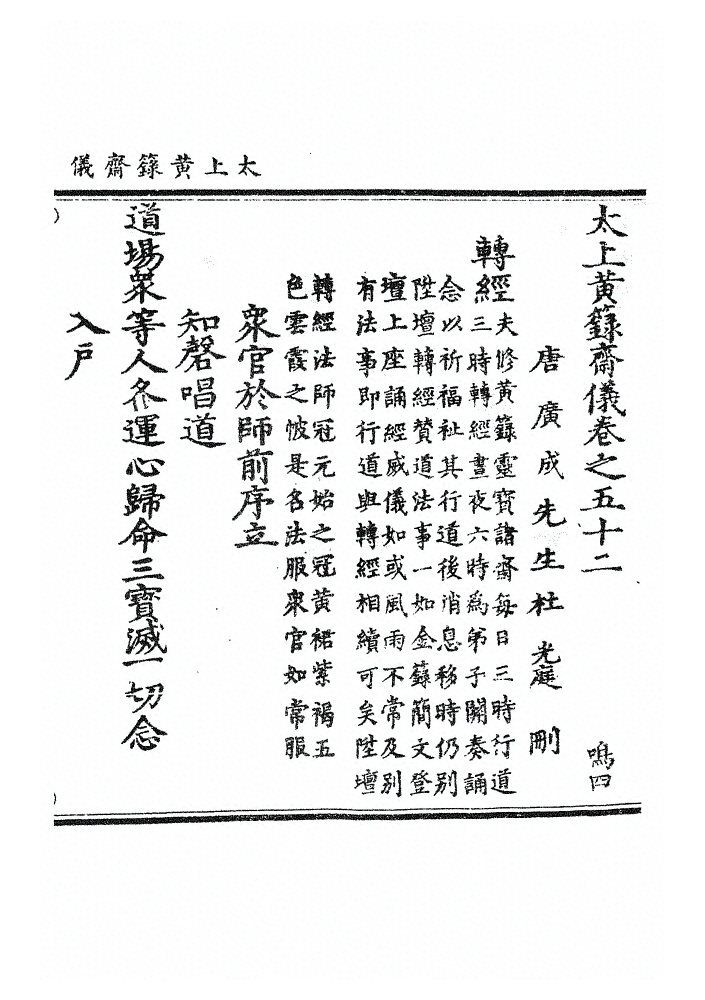 太上黃籙齋儀
太上黃籙齋儀卷之五十二 鳴四
唐廣成先生杜光庭刪
轉經夫修黃籙靈寶諸齋每日三時行道
三時轉經晝夜六時為弟子關奏誦
念以祈福祉其行道後消息移時仍別
陞壇轉經贊道法事一如金籙簡文登
壇上座誦經威儀如或風雨不常及別
有法事即行道與轉經相續可矣陞壇
轉經法師冠元始之冠黃裙紫褐五
色雲霞之帔是名法服衆官如常服
衆官於師前序立
知磬唱道
道場衆等人各運心歸命三寶滅一切念
入戶